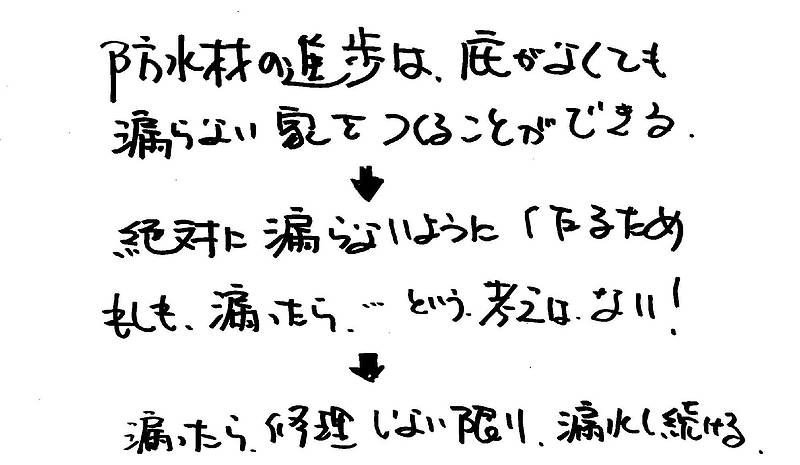 防水材の進歩は、庇がなくても
漏らない家をつくることができる.
↓
絶対に漏らないように作るため
もしも、漏ったら、… という考えは、ない!
↓
漏ったら、修理しない限り、漏水し続ける.